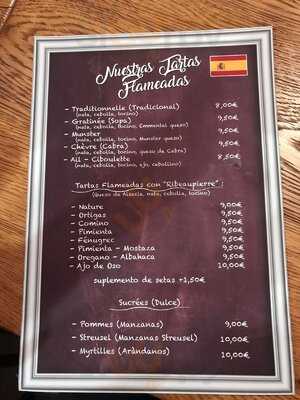 Nuestras Tartas
Flameadas
- Traditionnelle (Tradicional) 8,00€
(nata, cebolla, tocino)
- Gratinée (Sopa) 9,50€
(nata, cebolla, tocino, Emmental queso)
- Munster 9,50€
(nata, cebolla, tocino, Munster queso)
- Chèvre (Cabra) 9,50€
(nata, cebolla, tocino, queso de Cabra)
- Ail - Ciboulette 8,50€
(nata, cebolla, tocino, ajo, cebollino)
Tartas Flameadas con "Ribeaupierre" :
(Queso de Alsacia, nata, cebolla, tocino)
- Nature 9,00€
- Ortigas 9,50€
- Comino 9,50€
- Pimienta 9,50€
- Fénugrec 9,50€
- Pimienta - Mostaza 9,50€
- Oregano - Albahaca 9,50€
- Ajo de Oso 10,00€
suplemento de setas +1,50€
Sucrées (Dulce)
- Pommes (Manzanas) 9,00€
- Streusel (Manzanas Streusel) 10,00€
- Myrtilles (Arándanos) 10,00€